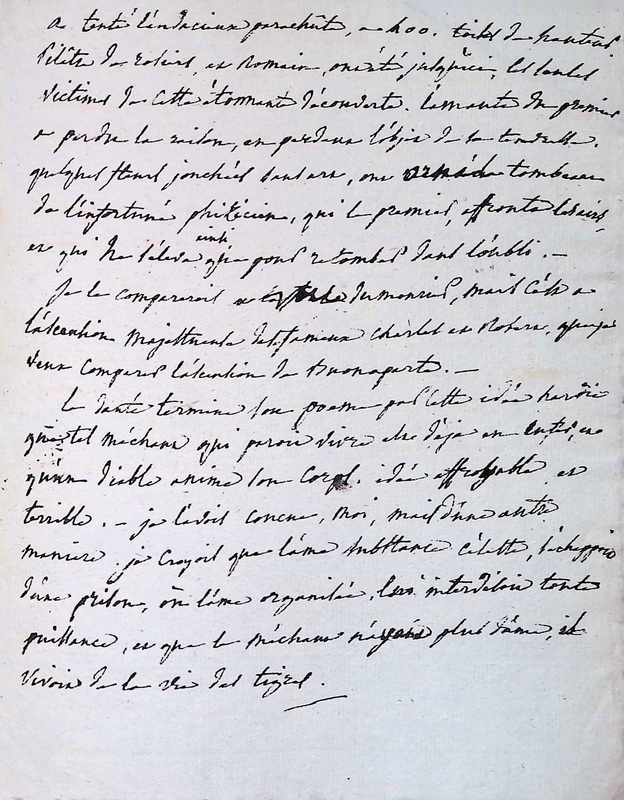 a tenté l'audacieux parachute, a 400. toises de hauteur.
Pilâtre de rosiers, et Romain, ont été jusqu'ici, les seules
victimes de cette étonnante découverte. l'amante du premier
a perdu la raison, en perdant l'objet de sa tendresse.
quelques fleurs jonchées sans art, ont orné le tombeau
de l'infortuné phisicien, qui le premier, affronta les airs,
et qui ne s'éleva ainsi que pour retomber dans l'oubli. —
Je le comparerois a du mouries, mais c'est a
l'ascention majestueuse des fameux charles et Robert, que je
veux comparer l'ascention de Buonaparte. —
Le dante termine son poeme par cette idée hardie
que tel méchant qui paroit vivre est déja en enfer, et
qu'un diable anime son corps. idée effroyable et
terrible. — je l'avois conçue, moi, mais d'une autre
maniere. je croyois que l'ame substance céleste, s'échappoit
d'une prison, où l'ame organisée, lui interdisoit toute
puissance, et que le méchant n'ayant plus d'ame, il
vivoit de la vie des tigres.